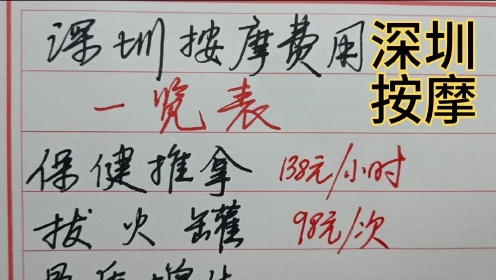 深圳按摩费用
深圳
按摩
一览表
保健推拿 138元/小时
拔火罐 98元/次